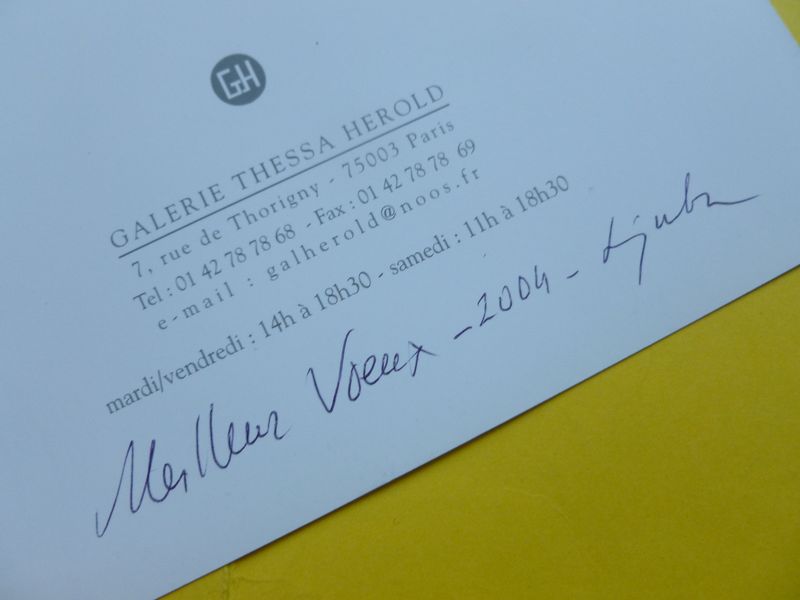 GH
GALERIE THESSA HEROLD
7, rue de Thorigny - 75003 Paris
Tel : 01 42 78 78 68 - Fax : 01 42 78 78 69
e-mail : galherold@noos.fr
mardi/vendredi : 14h à 18h30 - samedi : 11h à 18h30
Meilleur Voeux - 2004 - Ljuba